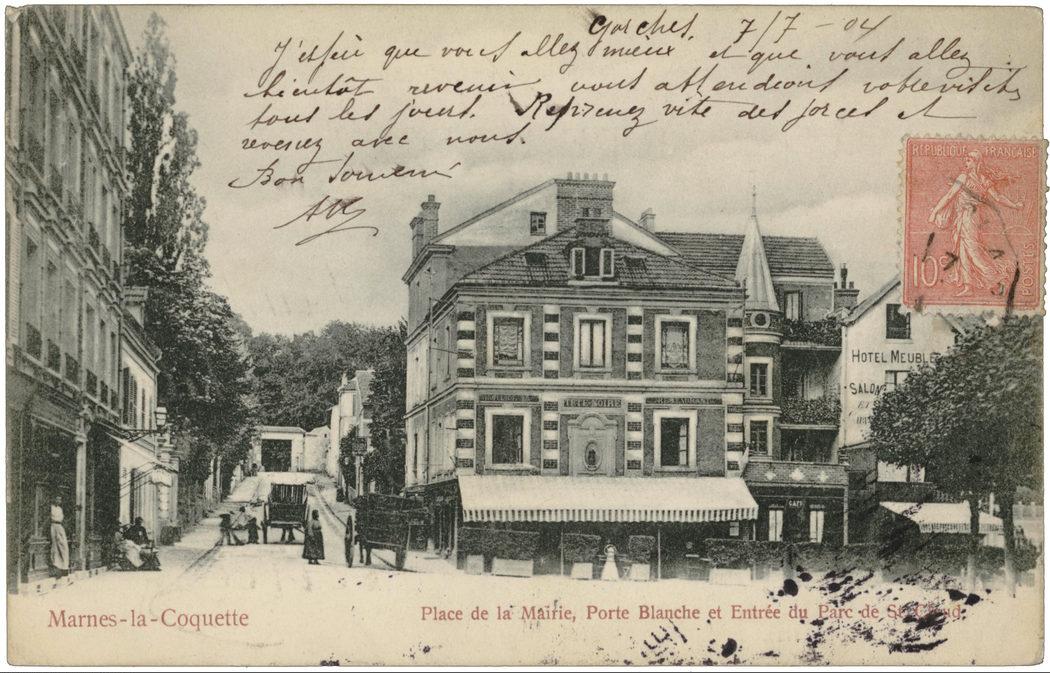 Garches. 7/7 - 04
J'espère que vous allez mieux et que vous allez
bientôt revenir nous attendions votre visite
tous les jours. Reprenez vite des forces et
revenez avec nous.
Bon souvenir
REPUBLIQUE FRANÇAISE
10c
POSTES
HOTEL MEUBLÉ
SALONS
TETE NOIRE
RESTAURANT
CAFÉ
Marnes-la-Coquette
Place de la Mairie, Porte Blanche et Entrée du Parc de St-Cloud.